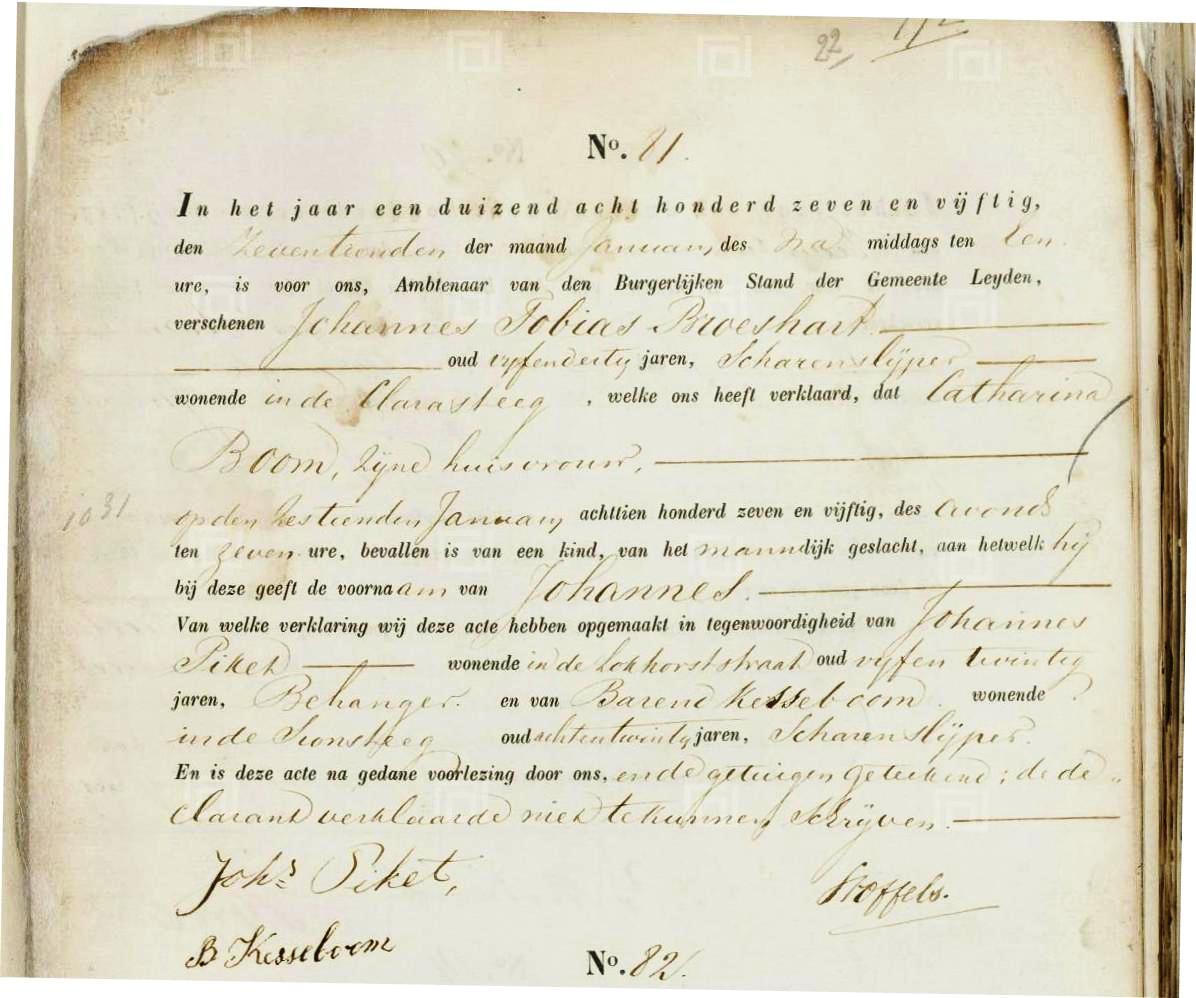 22
No. 81.
In het jaar een duizend acht honderd zeven en vijftig,
den zeventienden der maand Januarij des na middags ten een
ure, is voor ons, Ambtenaar van den Burgerlijken Stand der Gemeente Leyden,
verschenen Johannes Tobias Broeshart
oud vijfendertig jaren, Scharenslijper
wonende in de Clarasteeg, welke ons heeft verklaard, dat Catharina
Boom, zijne huisvrouw,
op den zestienden Januarij achttien honderd zeven en vijftig, des avonds
ten zeven ure, bevallen is van een kind, van het mannelijk geslacht, aan hetwelk hij
bij deze geeft de voornaam van Johannes.
Van welke verklaring wij deze acte hebben opgemaakt in tegenwoordigheid van Johannes
Piket wonende in de Lokhorststraat oud vijfentwintig
jaren, Behanger. en van Barend Kesseboom. wonende
in de Sionsteeg oud achtentwintig jaren, Scharenslijper.
En is deze acte na gedane voorlezing door ons, en de getuigen geteekend; de de-
1031
clarant verklaarde niet te kunnen schrijven.
Johs Piket,
Stoffels.
B Kesseboom
No. 82.